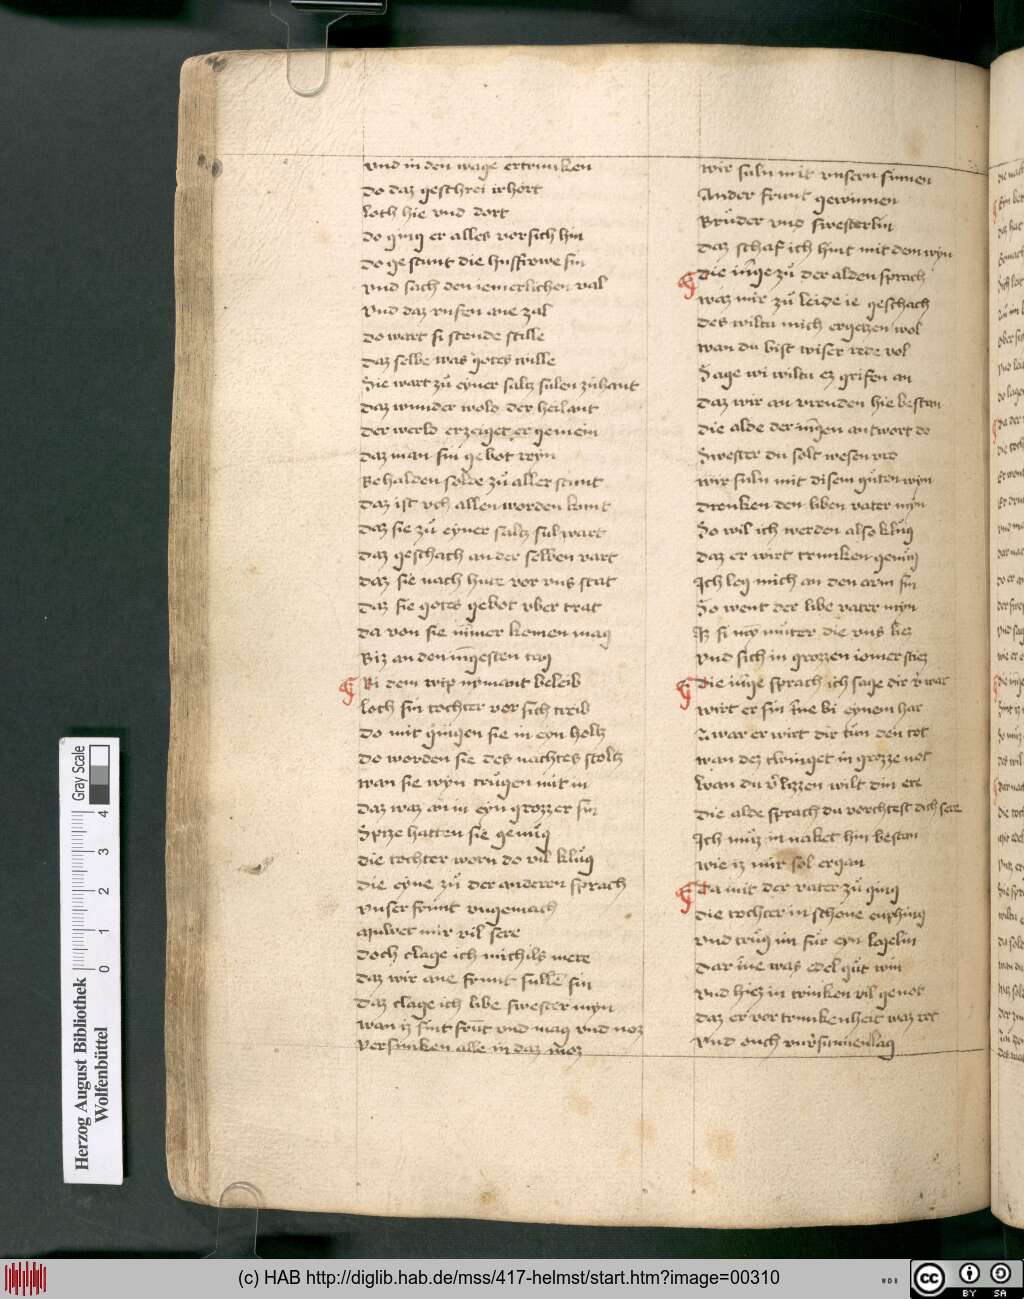 vnd in den wage ertrunken
Do daz geschrei irhort
loth hie vnd dort
do ging er alles vorsich hin
do gestunt die husfrowe sin
vnd sach den iemerlichen val
vnd daz rufen ane zal
do wart si stende stille
daz selbe was gotes wille
Sie wart zů eyner saltz sulen zuhant
daz wunder wold der heilant
der werld erzeigen gemein
daz man sin gebot reyn
Behalden solde zů aller stunt
daz ist vch allen worden kunt
daz sie zů eyner saltz sul wart
daz geschach an der selben vart
daz sie nach hute vor vns stat
daz sie gotes gebot vber trat
da von sie nim̄er komen mag
Biz an den iūgesten tag
Bi dem wip nymant beleib
loth sin tochter vor sich treib
Do mit gingen sie in eyn holtz
do worden sie des nachtes stoltz
wan sie wyn trůgen mit in
daz waz an in eyn grozzer sin
Spize hatten sie genůg
die tochter worn do vil klůg
die eyne zů der anderen sprach
vnser frunt vngemach
Muwet mir vil sere
doch clage ich michils mere
daz wir ane frunt sullē sin
daz clage ich libe swester myn
wan iz sint frūt vnd mag vnd noz
versunken alle in daz moz
wir suln mit vnsern sinnen
Ander frunt gewinnen
Brůder vnd swesterlin
daz schaf ich hint mit dem wyn
die iūge zů der alden sprach
waz mir zů leide ie geschach
des wiltu mich ergetzen wol
wan du bist wiser rede vol
Sage wi wiltu ez grifen an
daz wir an vreuden hie bestan
die alde der iūgen antwort do
Swester du solt wesen vro
wir suln mit disem gůten wyn
trenken den liben vater myn
So wil ich werden also klůg
daz er wirt trunken genůg
Ich leg mich an den arm sin
So went der libe vater myn
Iz si my můter die vns liez
vnd sich in grozzen iomer stiez
die iūge sprach ich sage dir v̄ war
wirt er sin īne bi eynem har
zwar er wirt dir tůn den tot
wan dez twinget in grozze not
wan du v̄lizzen wilt din ere
die alde sprach du vorchtest dich sere
Ich můz in naket hin bestan
wie iz mir sol ergan
Da mit der vater zů ging
die tochter in schone enphing
vnd trůg im für eyn legelin
dar īne was edel gůt win
vnd hiez in trinken vil genot
daz er vor trunkenheit waz rot
vnd ouch vnv̄sunnen lag
Herzog August Bibliothek
Wolfenbüttel
0 1 2 3 4
Gray Scale
(c) HAB http://diglib.hab.de/mss/417-helmst/start.htm?image=00310
WDB
cc BY SA